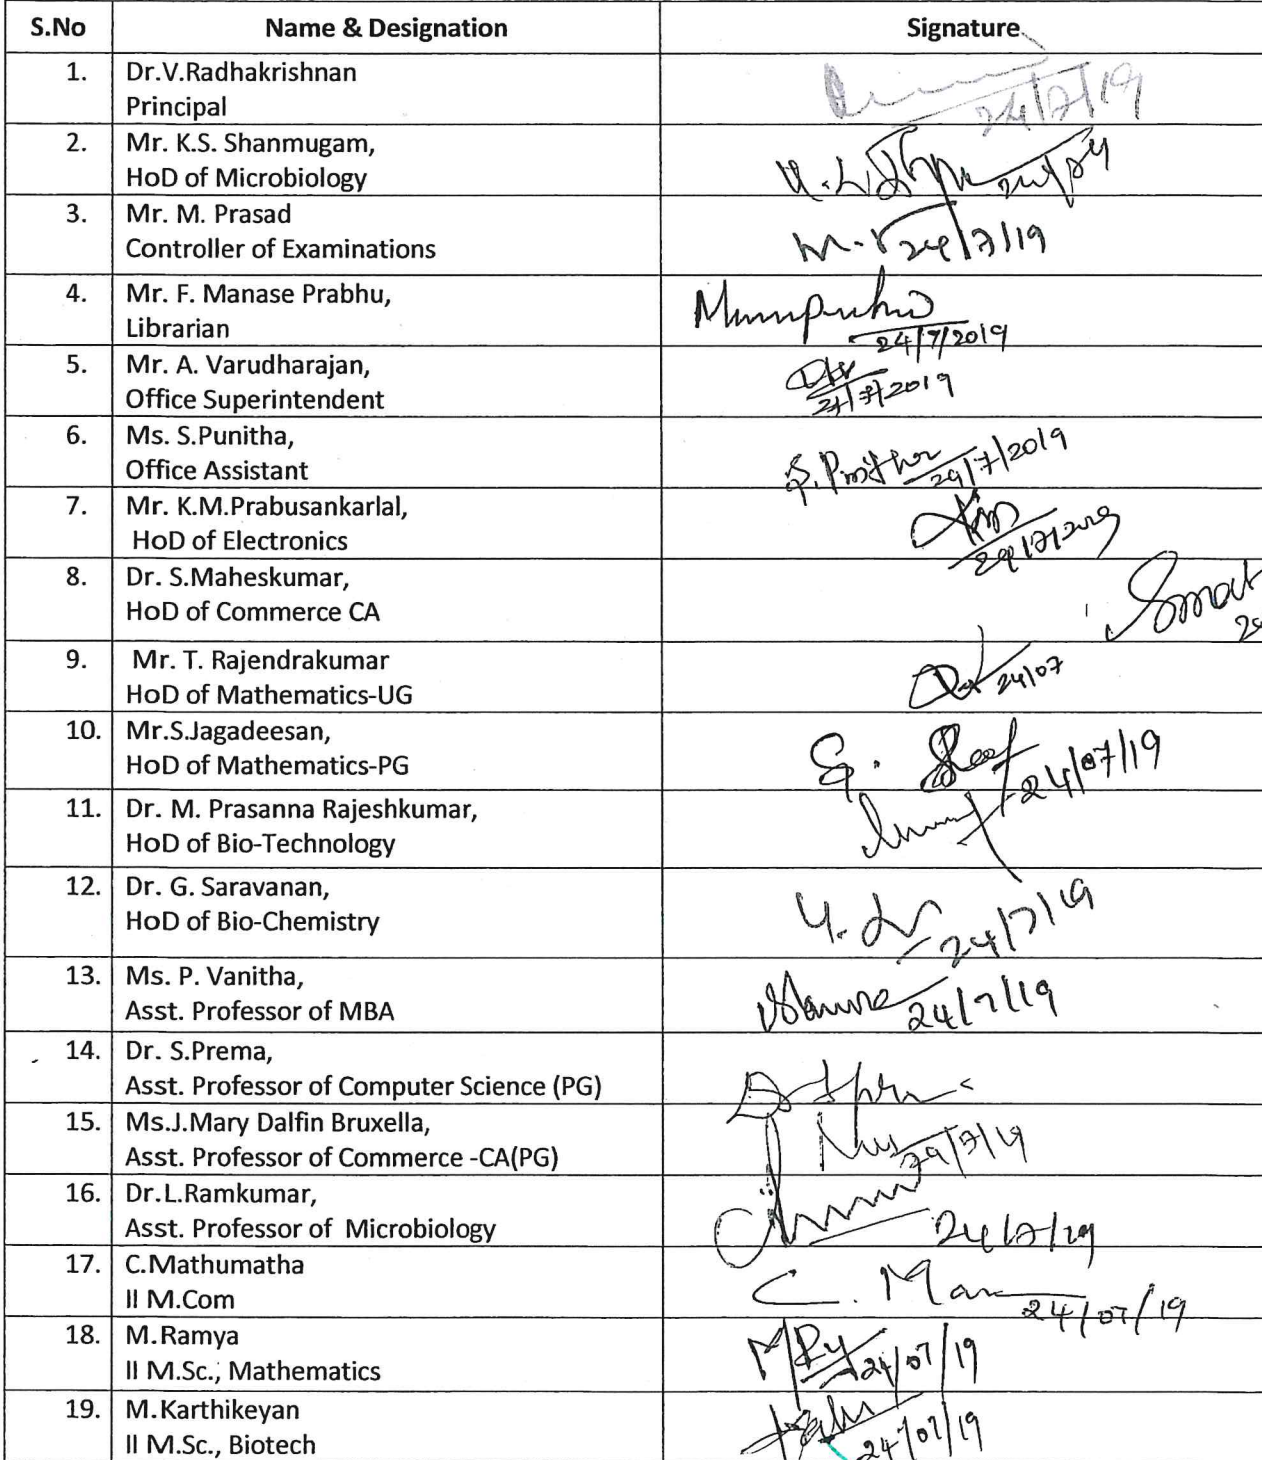 S.No Name & Designation Signature
1. Dr.V.Radhakrishnan
Principal
24/7/19
2. Mr. K.S. Shanmugam,
HoD of Microbiology
3. Mr. M. Prasad
Controller of Examinations
24/7/19
4. Mr. F. Manase Prabhu,
Librarian
24/7/2019
5. Mr. A. Varudharajan,
Office Superintendent
6. Ms. S.Punitha,
Office Assistant
7. Mr. K.M.Prabusankarlal,
HoD of Electronics
8. Dr. S.Maheskumar,
HoD of Commerce CA
9. Mr. T. Rajendrakumar
HoD of Mathematics-UG
24/07
10. Mr.S.Jagadeesan,
HoD of Mathematics-PG
24/07/19
11. Dr. M. Prasanna Rajeshkumar,
HoD of Bio-Technology
12. Dr. G. Saravanan,
HoD of Bio-Chemistry
24/7/19
13. Ms. P. Vanitha,
Asst. Professor of MBA
24/7/19
14. Dr. S.Prema,
Asst. Professor of Computer Science (PG)
15. Ms.J.Mary Dalfin Bruxella,
Asst. Professor of Commerce -CA(PG)
16. Dr.L.Ramkumar,
Asst. Professor of Microbiology
17. C.Mathumatha
II M.Com
24/07/19
18. M.Ramya
II M.Sc., Mathematics
24/07/19
19. M.Karthikeyan
II M.Sc., Biotech
24/07/19